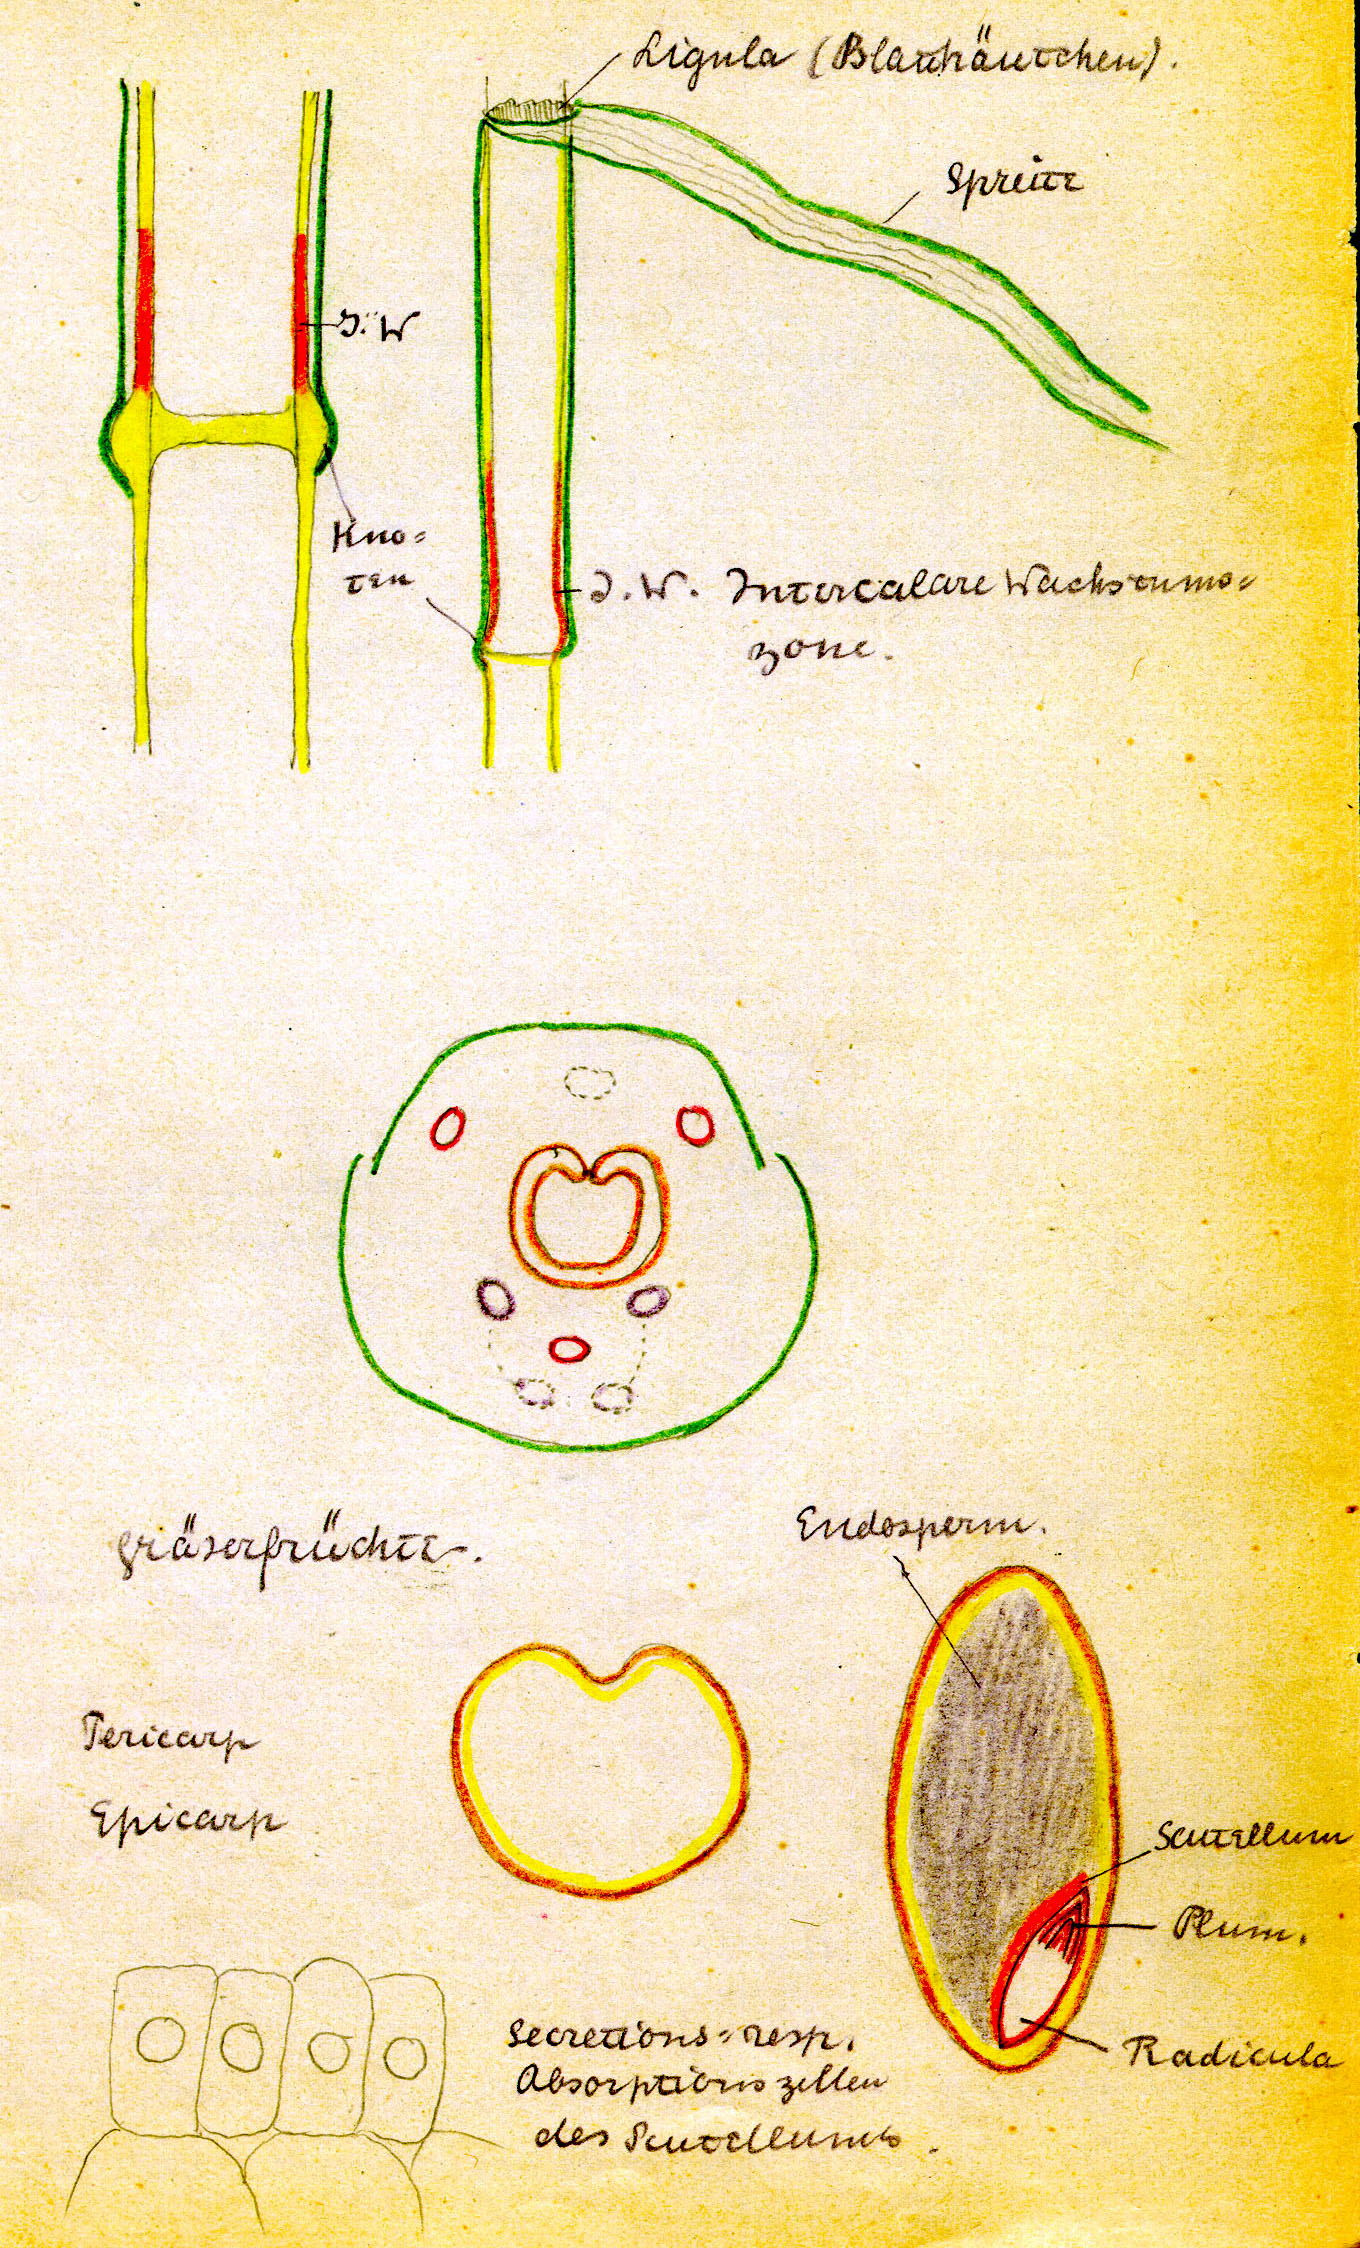 Ligula (Blatthäutchen).
Spreite
J. W
Kno=
ten
J. W. Intercalare Wachstums=
zone.
Endosperm.
Gräserfrüchte.
Pericarp
Epicarp
Scutellum
Plum.
Radicula
Secretions= resp.
Absorptionszellen
des Scutellums.